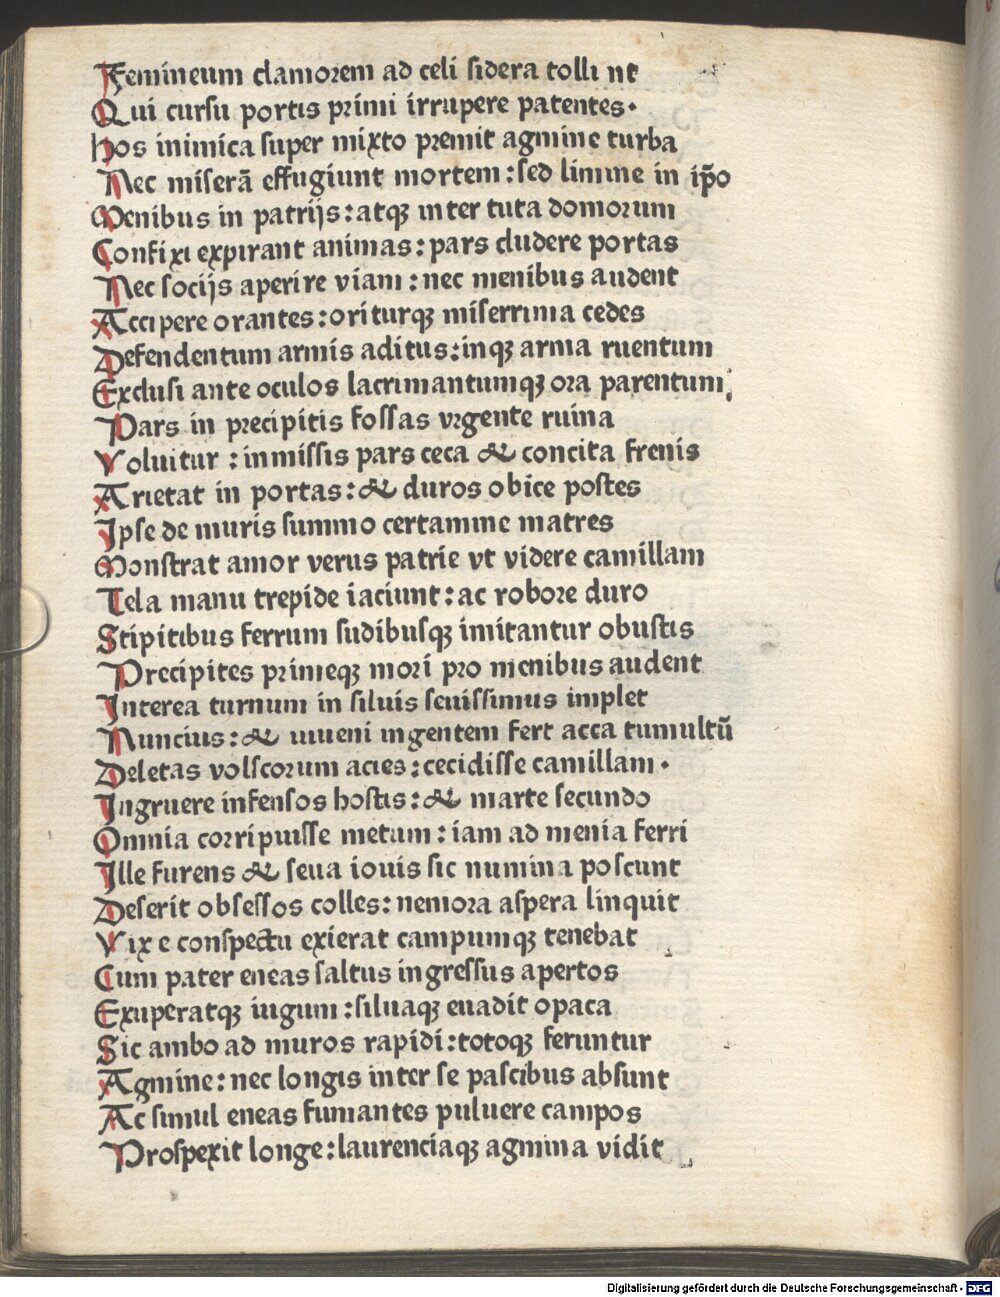 Femineum clamorem ad celi sidera tolli nt
Qui cursu portis primi irrupere patentes.
Hos inimica super mixto premit agmine turba
Nec miserā effugiunt mortem: sed limine in ip̄o
Menibus in patrijs: atqꝫ inter tuta domorum
Confixi expirant animas: pars cludere portas
Nec socijs aperire viam: nec menibus audent
Accipere orantes: oriturqꝫ miserrima cedes
Defendentum armis aditus: inqꝫ arma ruentum
Exclusi ante oculos lacrimantumqꝫ ora parentum
Pars in precipitis fossas vrgente ruina
Voluitur: inmissis pars ceca & concita frenis
Arietat in portas: & duros obice postes
Ipse de muris summo certamine matres
Monstrat amor verus patrie vt videre camillam
Tela manu trepide iaciunt: ac robore duro
Stipitibus ferrum sudibusqꝫ imitantur obustis
Precipites primeqꝫ mori pro menibus audent
Interea turnum in siluis seuissimus implet
Nuncius: & iuueni ingentem fert acca tumultū
Deletas volscorum acies: cecidisse camillam.
Ingruere infensos hostis: & marte secundo
Omnia corripuisse metum: iam ad menia ferri
Ille furens & seua iouis sic numina poscunt
Deserit obsessos colles: nemora aspera linquit
Vix e conspectu exierat campumqꝫ tenebat
Cum pater eneas saltus ingressus apertos
Exuperatqꝫ iugum: siluaqꝫ euadit opaca
Sic ambo ad muros rapidi: totoqꝫ feruntur
Agmine: nec longis inter se pascibus absunt
Ac simul eneas fumantes puluere campos
Prospexit longe: laurenciaqꝫ agmina vidit
Digitalisierung gefördert durch die Deutsche Forschungsgemeinschaft - DFG